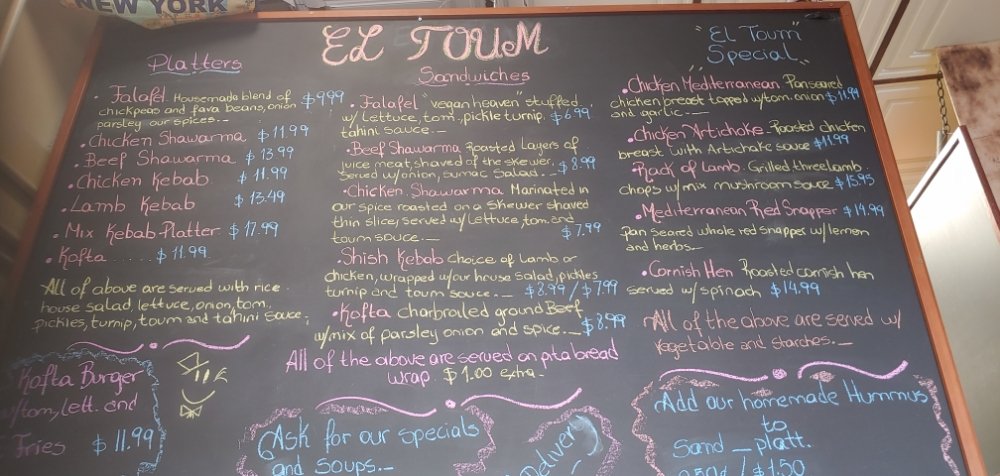 NEW YORK
EL TOUM
Platters
• Falafel Housemade blend of
chickpeas and fava beans, onion $9.99
parsley our spices...
• Chicken Shawarma $11.99
• Beef Shawarma $13.99
• Chicken Kebab $11.99
• Lamb Kebab $13.49
• Mix Kebab Platter $17.99
• Kofta ...... $11.99
All of above are served with rice
house salad, lettuce, onion, tom,
pickles, turnip, toum and tahini sauce.
Kofta Burger
w/tom, lett. and
Fries $11.99
Sandwiches
• Falafel "vegan heaven" stuffed
w/ Lettuce, tom., pickle turnip. $6.99
tahini sauce._
• Beef Shawarma Roasted Layers of
juice meat, shaved of the skewer, $8.99
served w/onion, sumac salad._
• Chicken Shawarma Marinated in
our spice roasted on a skewer shaved
thin slice, served w/ Lettuce, tom. and
toum souce._ $7.99
• Shish Kebab choice of Lamb or
chicken, wrapped w/our house salad, pickles,
turnip and toum sauce._ $8.99/$7.99
• Kofta charbroiled ground Beef
w/mix of parsley onion and spice._ $8.99
All of the above are served on pita bread
wrap. $1.00 extra.
Ask for our specials
and soups._
Delivery
"El Toum"
Special
• Chicken Mediterranean Panseared
chicken breast topped w/tom. onion $11.99
and garlic._
• Chicken Artichoke - Roasted chicken
breast with Artichoke sauce $11.99
• Rack of Lamb. Grilled three lamb
chops w/mix mushroom sauce $15.95
• Mediterranean Red Snapper $14.99
pan seared whole red snapper w/ lemon
and herbs_
• Cornish Hen Roasted cornish hen
served w/spinach $14.99
All of the above are served w/
vegetable and starches._
Add our homemade Hummus
to
Sand — platt.
$1.50